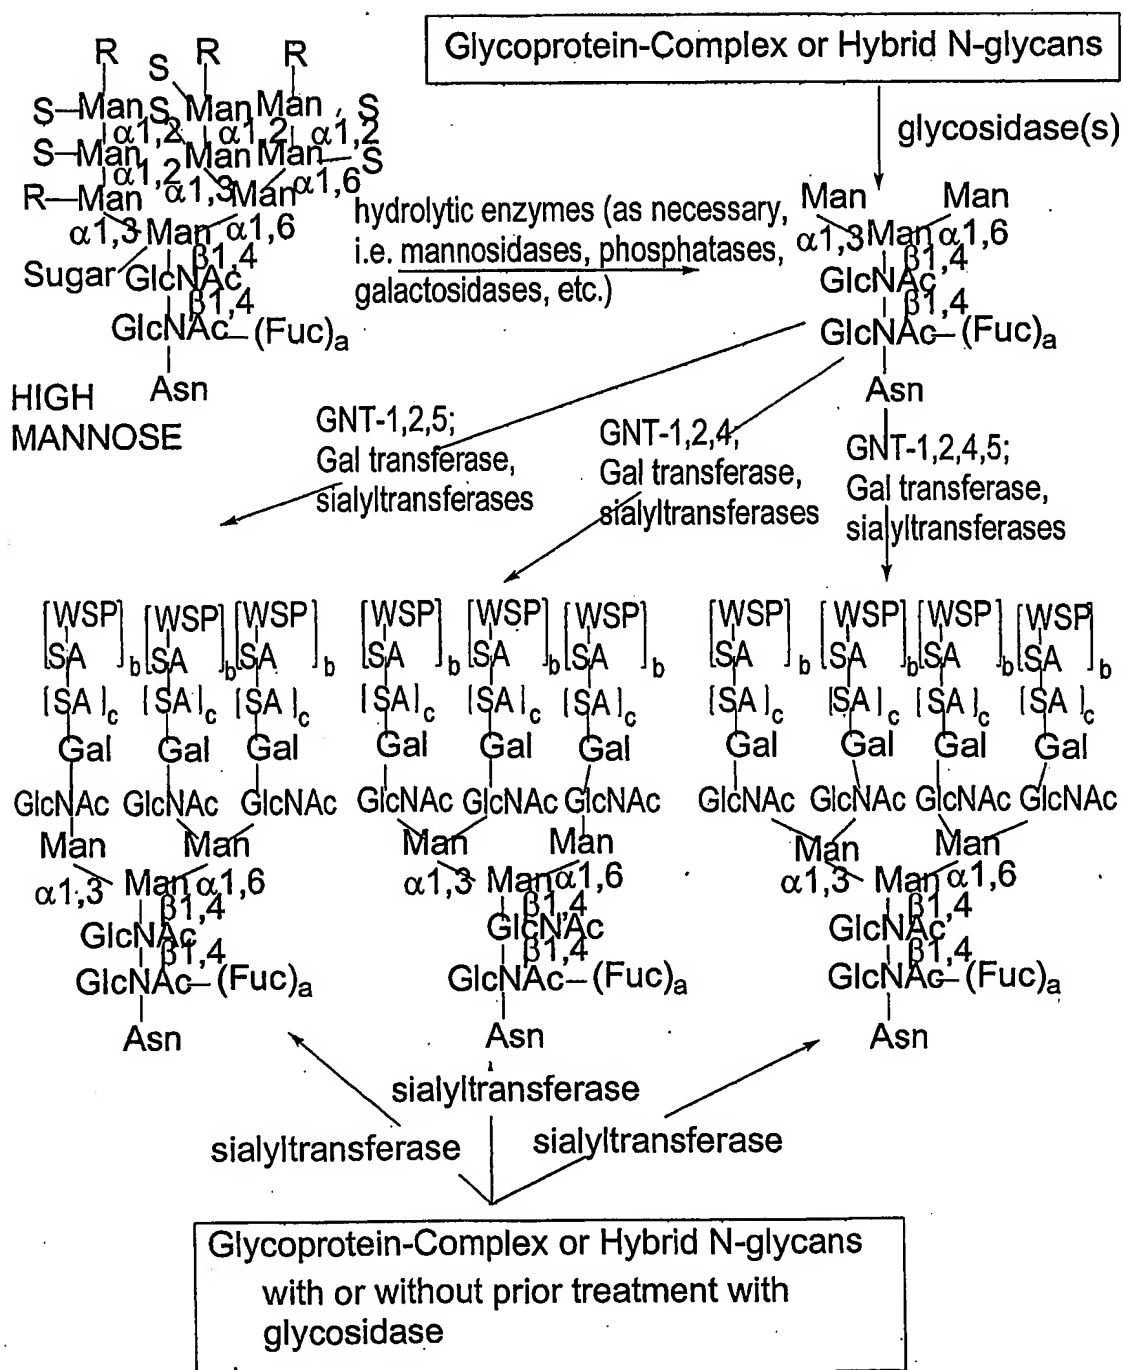 Glycoprotein-Complex or Hybrid N-glycans
glycosidase(s)
R S R R
S–Man S Man Man S
α1,2 α1,2 α1,2
S–Man Man Man S
α1,2 α1,3 Man α1,6
R–Man
α1,3 Man α1,6
β1,4
Sugar GlcNAc
β1,4
GlcNAc–(Fuc)a
Asn
HIGH
MANNOSE
hydrolytic enzymes (as necessary,
i.e. mannosidases, phosphatases,
galactosidases, etc.)
Man Man
α1,3 Man α1,6
β1,4
GlcNAc
β1,4
GlcNAc–(Fuc)a
Asn
GNT-1,2,5;
Gal transferase,
sialyltransferases
GNT-1,2,4;
Gal transferase,
sialyltransferases
GNT-1,2,4,5;
Gal transferase,
sialyltransferases
[WSP [WSP [WSP
SA]b SA]b SA]b
[SA]c [SA]c [SA]c
Gal Gal Gal
GlcNAc GlcNAc GlcNAc
Man Man
α1,3 Man α1,6
β1,4
GlcNAc
β1,4
GlcNAc–(Fuc)a
Asn
[WSP [WSP [WSP
SA]b SA]b SA]b
[SA]c [SA]c [SA]c
Gal Gal Gal
GlcNAc GlcNAc GlcNAc
Man Man
α1,3 Man α1,6
β1,4
GlcNAc
β1,4
GlcNAc–(Fuc)a
Asn
[WSP [WSP [WSP [WSP
SA]b SA]b SA]b SA]b
[SA]c [SA]c [SA]c [SA]c
Gal Gal Gal Gal
GlcNAc GlcNAc GlcNAc GlcNAc
Man Man
α1,3 Man α1,6
β1,4
GlcNAc
β1,4
GlcNAc–(Fuc)a
Asn
sialyltransferase
sialyltransferase
sialyltransferase
Glycoprotein-Complex or Hybrid N-glycans
with or without prior treatment with
glycosidase